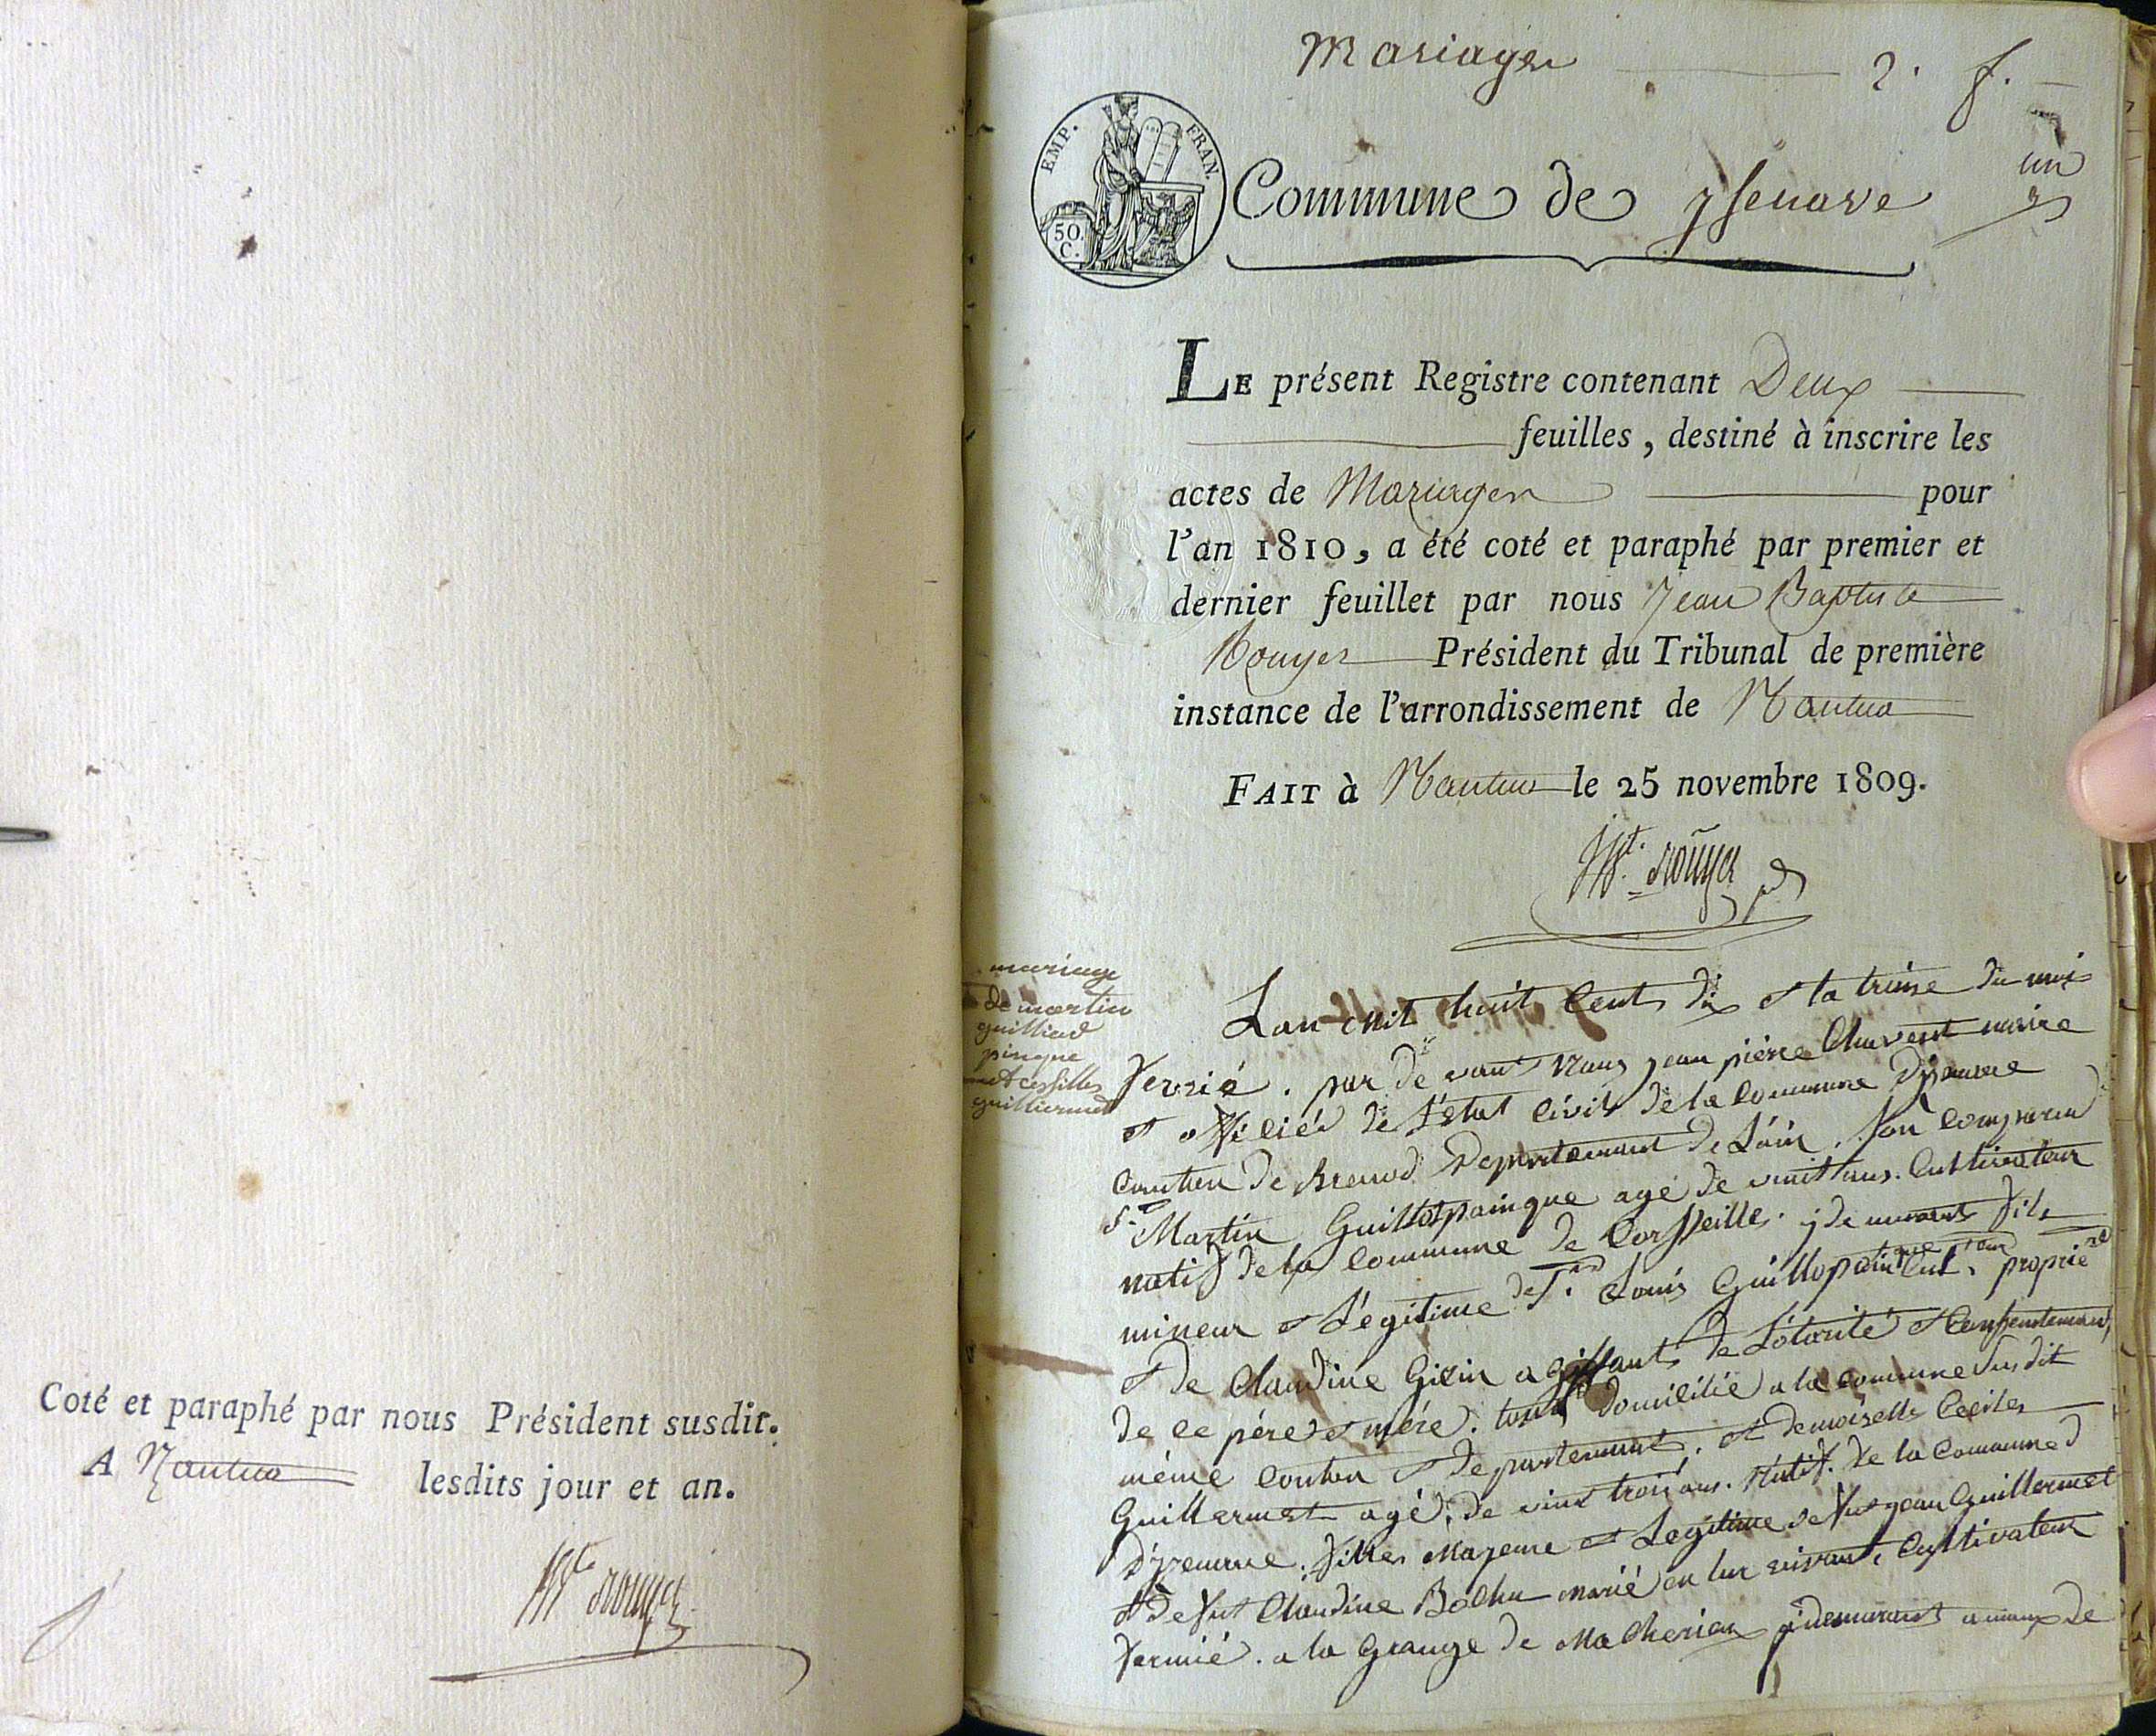 Coté et paraphé par nous Président susdit.
A Nantua lesdits jour et an.
Jte rouyer
Mariages 2. f.
EMP. FRAN.
50. C.
un
Commune de ysenave
LE présent Registre contenant Deux
feuilles, destiné à inscrire les
actes de Mariages pour
l'an 1810, a été coté et paraphé par premier et
dernier feuillet par nous Jean Baptiste
Rouyer Président du Tribunal de première
instance de l'arrondissement de Nantua
FAIT à Nantua le 25 novembre 1809.
Jte. rouyer
mariage
de martin
guilliod
pinque
et cesilles
guilliermet
Lan mil huit Cents dix et la treise du moi
fevrié. par de vant Nous jean piérre Chavent maire
et officiér de L'état Civil de la Commune Dysenave
Canton de Brenod Departement de L'ain. Son Comparu
Sr. Martin Guillotpainque agé de vint ans. Cultivateur
natif de la Commune de Corsseille. y demeurant fils
mineur et Légitime de Sr. Louis Guillopainque Cultr. proprié
et De Claudine Girin agissant de L'otorité et Consentement
de ce pére et mére. tous domicilié a la Commune Susdit
même Conton et Departement. et demoiselle Ceciles
Guillermet agé. de vint trois ans. Natif. de la Commune
D'ysenave. filles Majeure et Legitime de fut jean Guillermet
et De fut Claudine Bochu marié en lur vivant. Cultivateur
fermié. a la Grange de Macherieu y demeurant